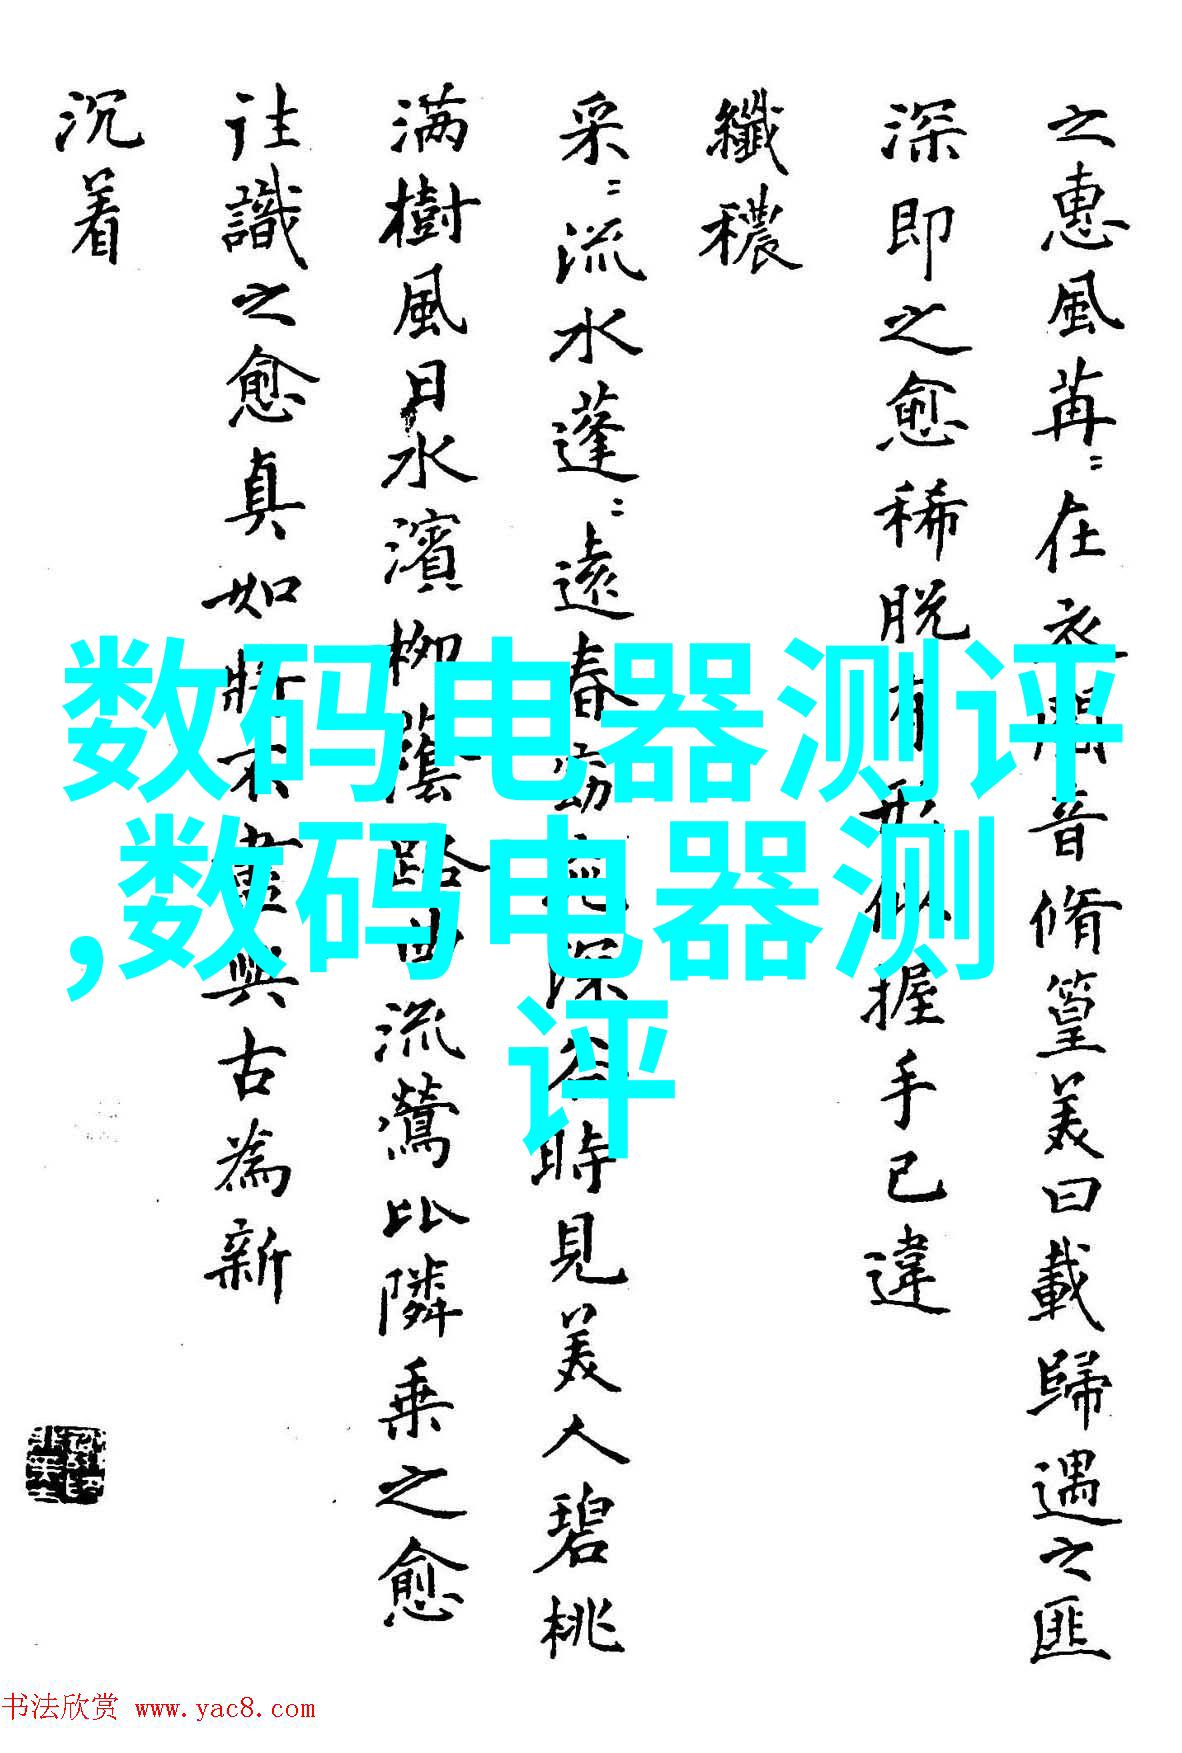 之惠風苒〻在衣閱音脩篁美曰載歸遇之匪
深即之愈稀脱有形似握手已違
纖穠
采〻流水蓬〻遠春窈窕深谷時見美人碧桃
满樹風日水濱柳蔭路曲流鶯比隣乗之愈
往識之愈真如將不盡與古為新
沉着
数码电器测评
,数码电器测
评
书法欣赏 www.yac8.com